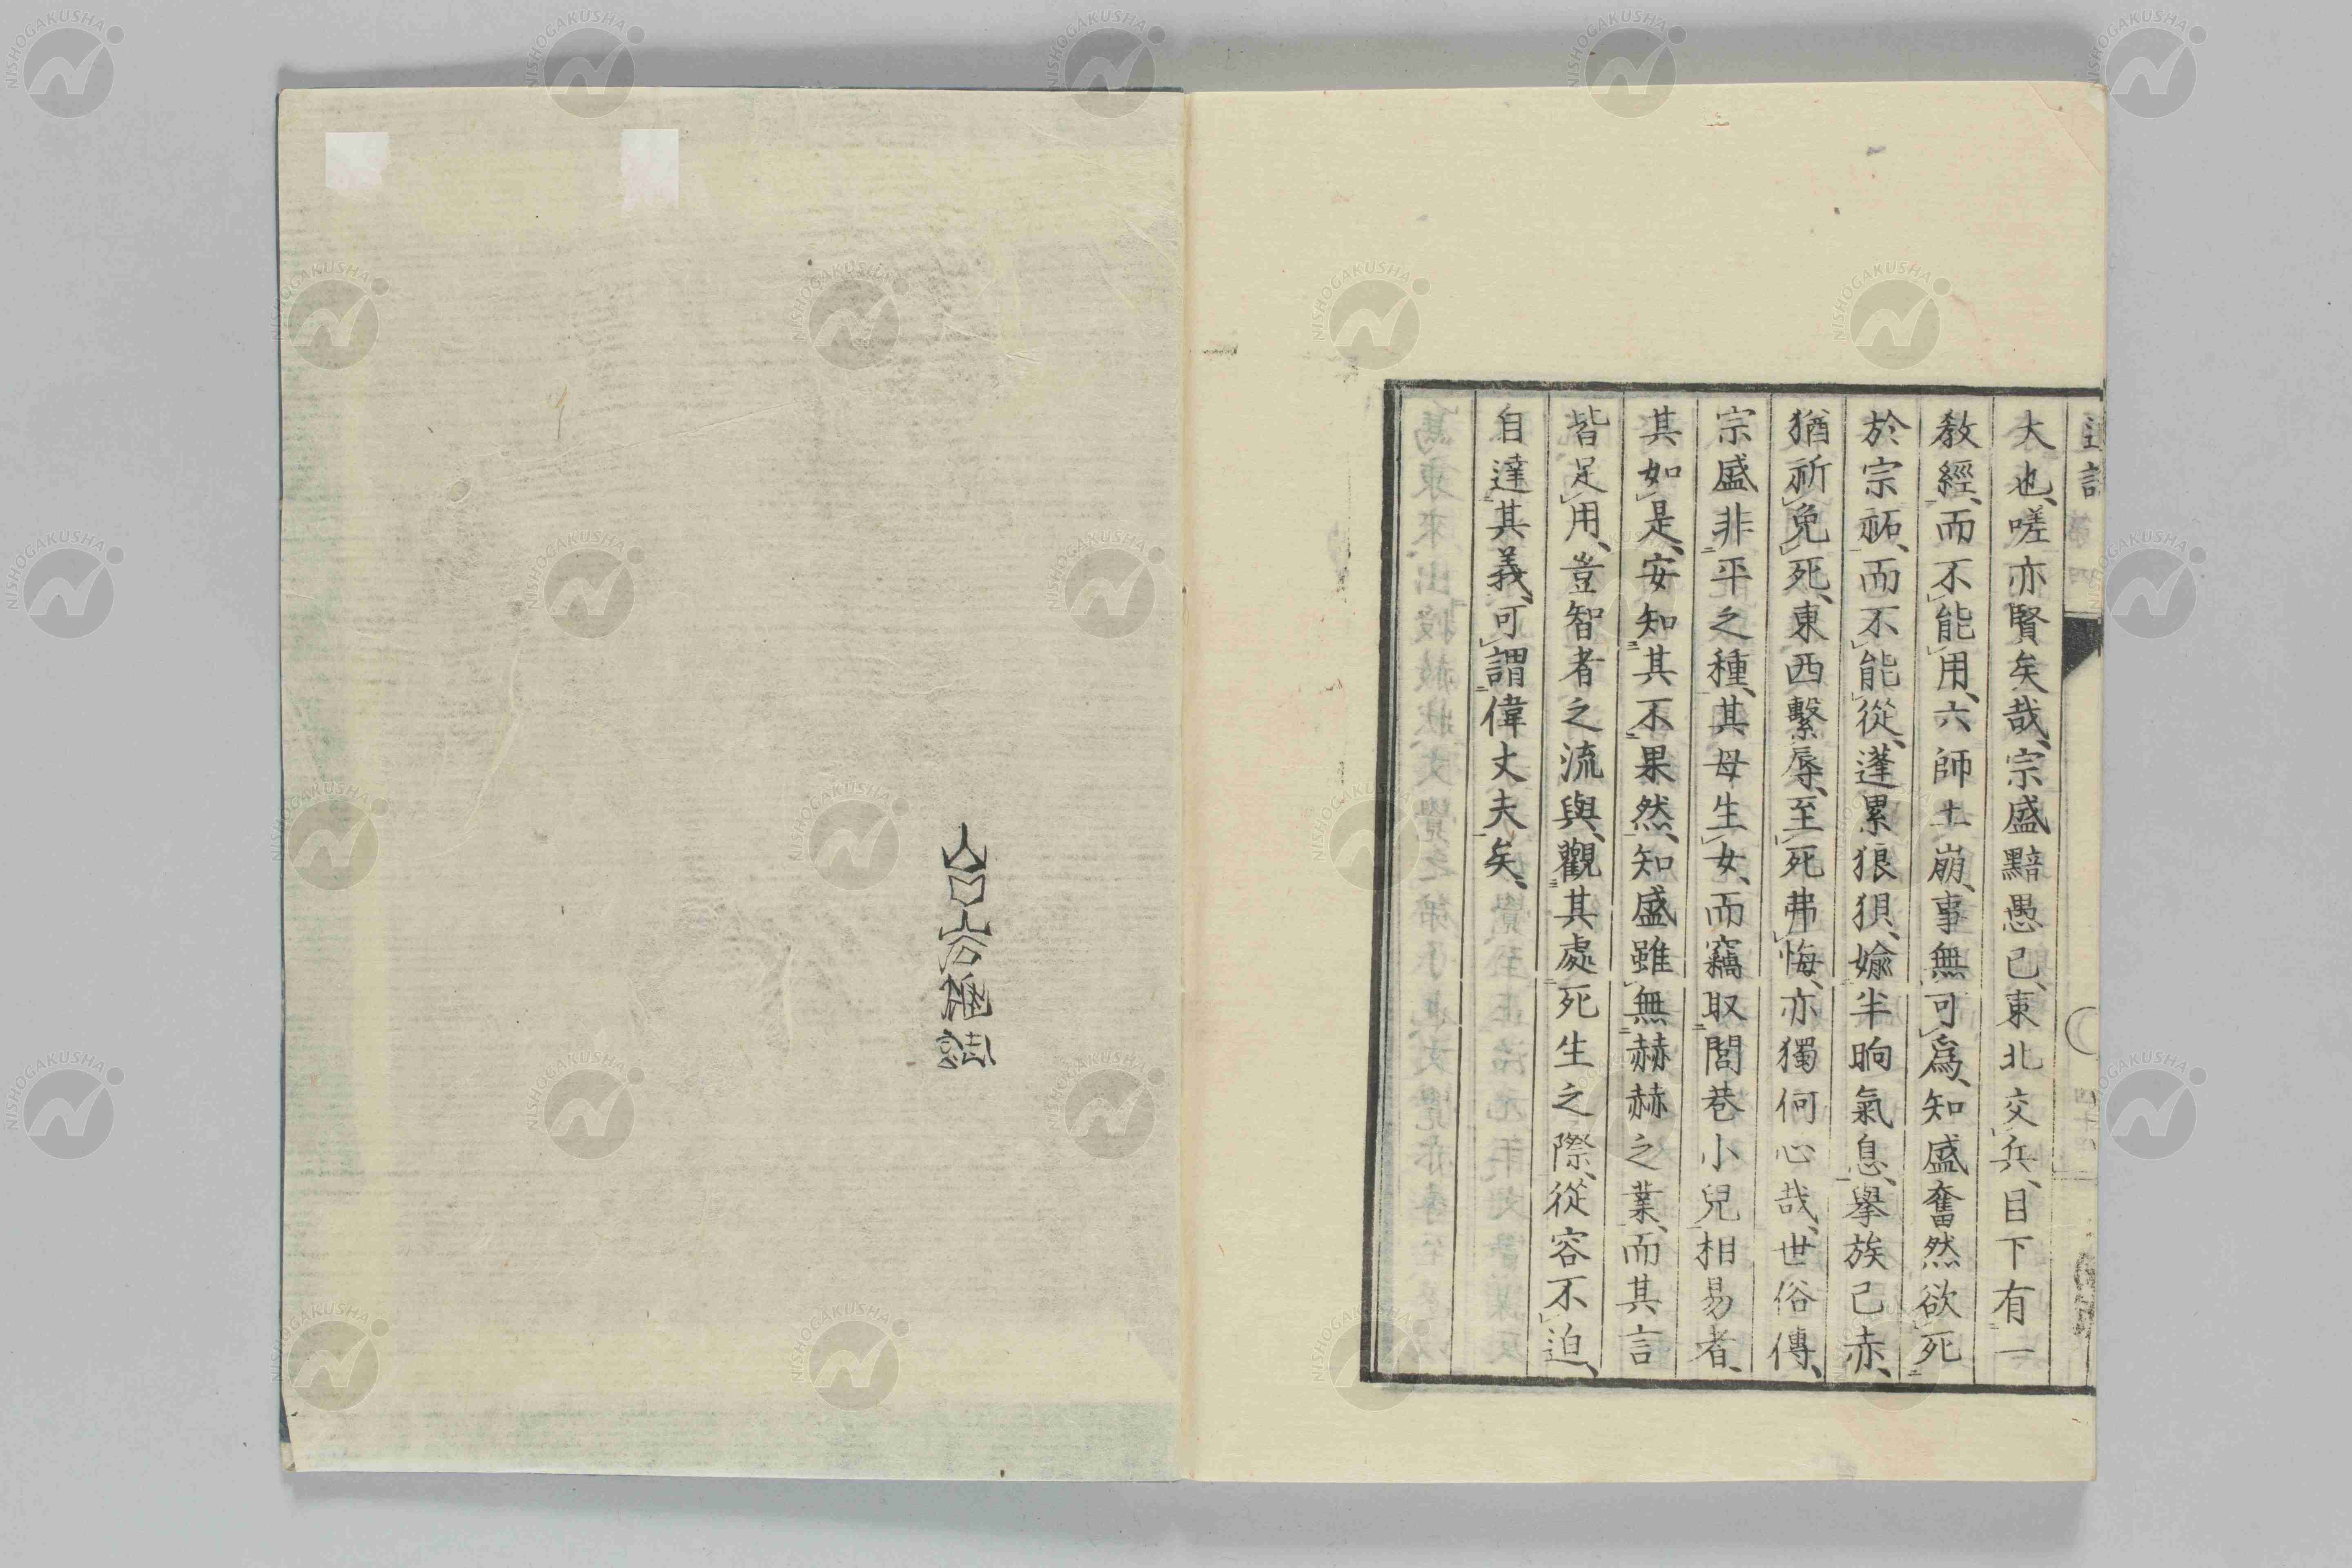 大也、嗟亦賢矣哉、宗盛黯愚已、東北交兵、目下有一
教經、而不能用、六師土崩、事無可爲、知盛奮然欲死
於宗祏、而不能從、蓬累狼狽、婾半晌氣息、擧族已赤、
猶祈免死、東西繫辱、至死弗悔、亦獨何心哉、世俗傳、
宗盛非平之種、其母生女、而竊取閭巷小兒相易者、
其如是、安知其不果然、知盛雖無赫赫之業、而其言
皆足用、豈智者之流與、觀其處死生之際、從容不迫、
自達其義、可謂偉丈夫矣、
NISHOGAKUSHA